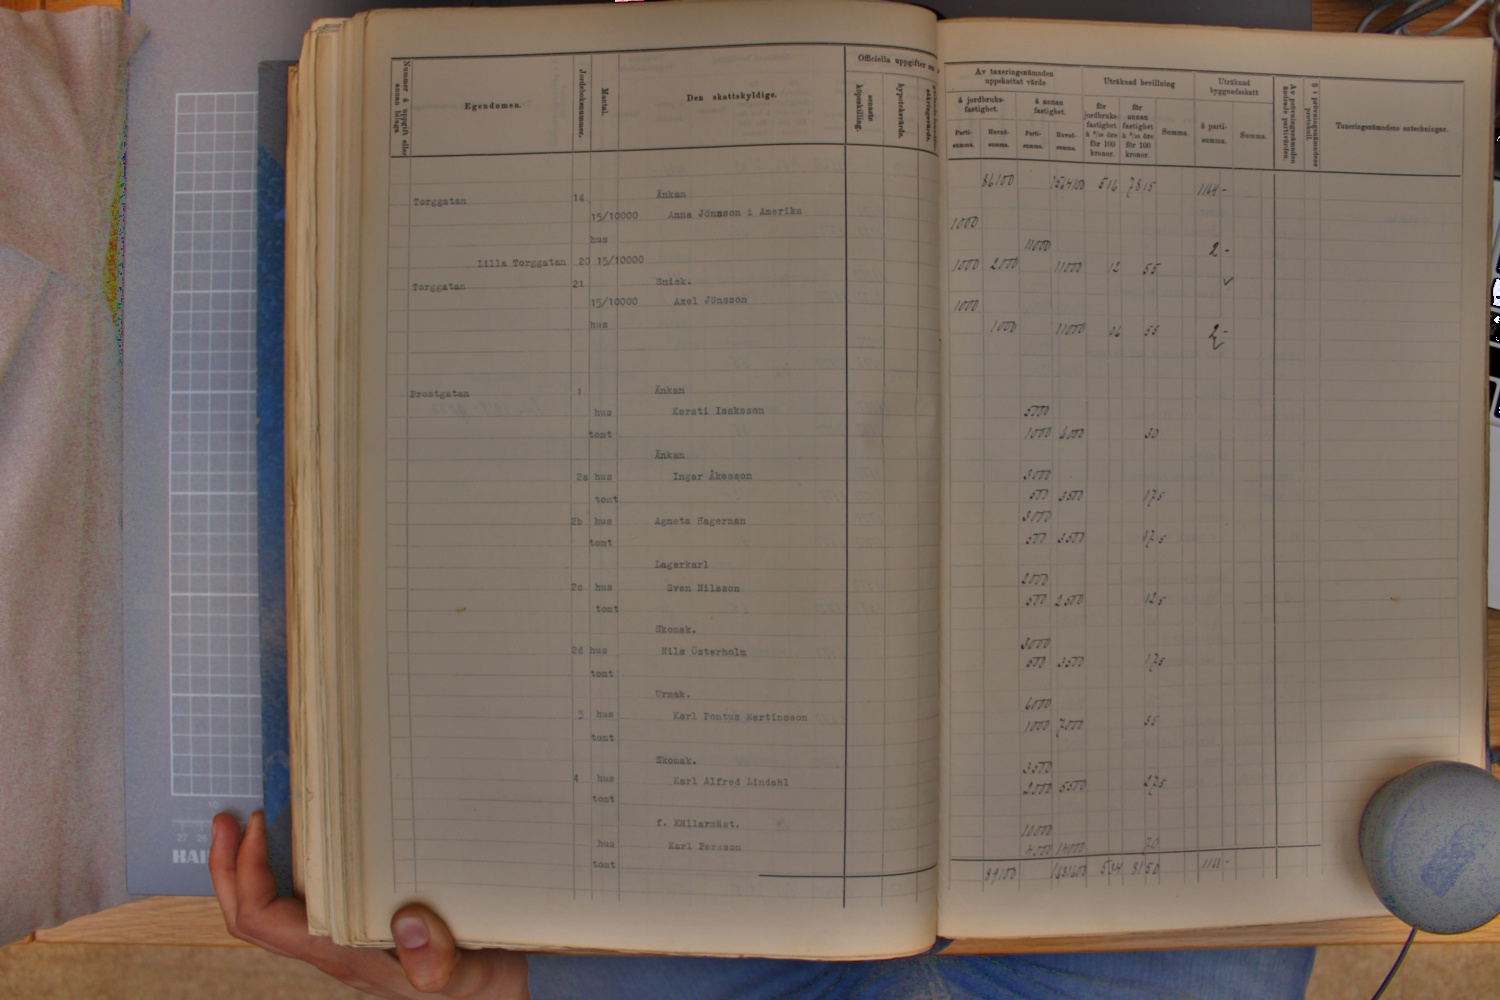 Nummer å uppgift eller annan bilaga
Egendomen.
Jordeboksnummer.
Mantal.
Den skattskyldige.
Officiella uppgifter om
senaste köpeskilling.
hypoteksvärde.
Torggatan 14 Änkan
15/10000 Anna Jönsson i Amerika
hus
Lilla Torggatan 20 15/10000
Torggatan 21 Snick.
15/10000 Axel Jönsson
hus
Prostgatan 1 Änkan
hus Kersti Isaksson
tomt
Änkan
2a hus Ingar Åkesson
tomt
2b hus Agneta Hagerman
tomt
Lagerkarl
2c hus Sven Nilsson
tomt
Skomak.
2d hus Nils Österholm
tomt
Urmak.
3 hus Karl Pontus Martinsson
tomt
Skomak.
4 hus Karl Alfred Lindahl
tomt
f. Källarmäst.
hus Karl Persson
tomt
Av taxeringsnämnden uppskattat värde
Uträknad bevillning
Uträknad byggnadsskatt
å jordbruksfastighet.
å annan fastighet.
för jordbruksfastighet
för 100 kronor.
för annan fastighet
för 100 kronor.
Summa.
å partisumma.
Summa.
Partisumma.
Huvudsumma.
Partisumma.
Huvudsumma.
Taxeringsnämndens anteckningar.
86100 1564100 516 7815 1164 -
1000
11000 2 -
1000 2000 11000 12 55
1000
1000 11000 06 55 2 -
5000
1000 6000 30
3000
500 3500 175
3000
500 3500 175
2000
500 2500 125
3000
500 3500 175
6000
1000 7000 35
3500
2000 5500 275
10000
4000 14000 70
89100 1631600 534 8150
10
27 26